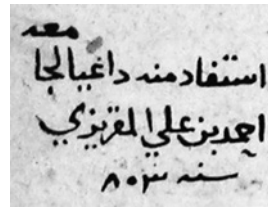 معه
استفاد منه داعيا لجا
احمد بن علي المقريزي
سنه ٨٠٣